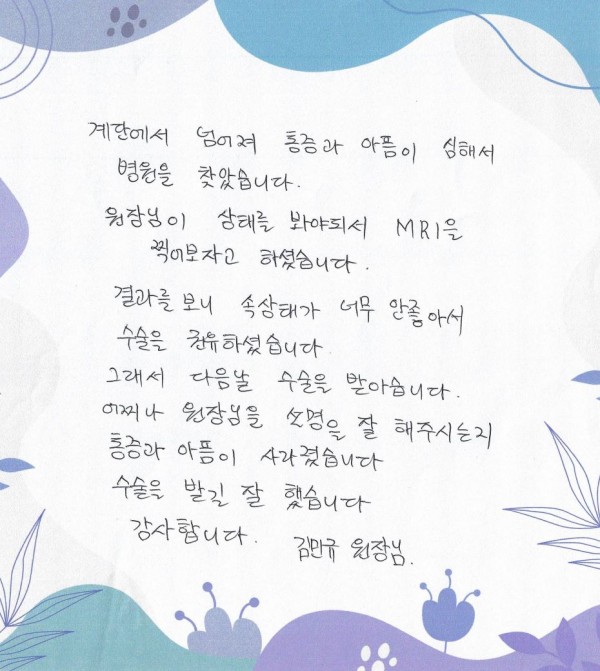 계단에서 넘어져 통증과 아픔이 심해서
병원을 찾았습니다.
원장님이 상태를 봐야되서 MRI을
찍어보자고 하셨습니다.
결과를 보니 속상태가 너무 안좋아서
수술을 권유하셨습니다
그래서 다음날 수술을 받아습니다.
어찌나 원장님을 소명을 잘 해주시는지
통증과 아픔이 사라졌습니다
수술을 받길 잘 했습니다
감사합니다. 김민규 원장님.